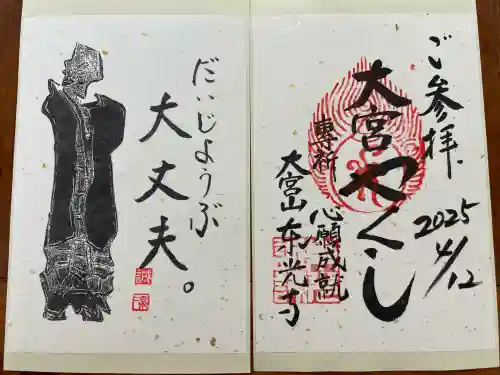 ご参拝
2025
4/12
大宮やくし
專祈
心願成就
大宮山東光寺
だいじょうぶ
大丈夫。